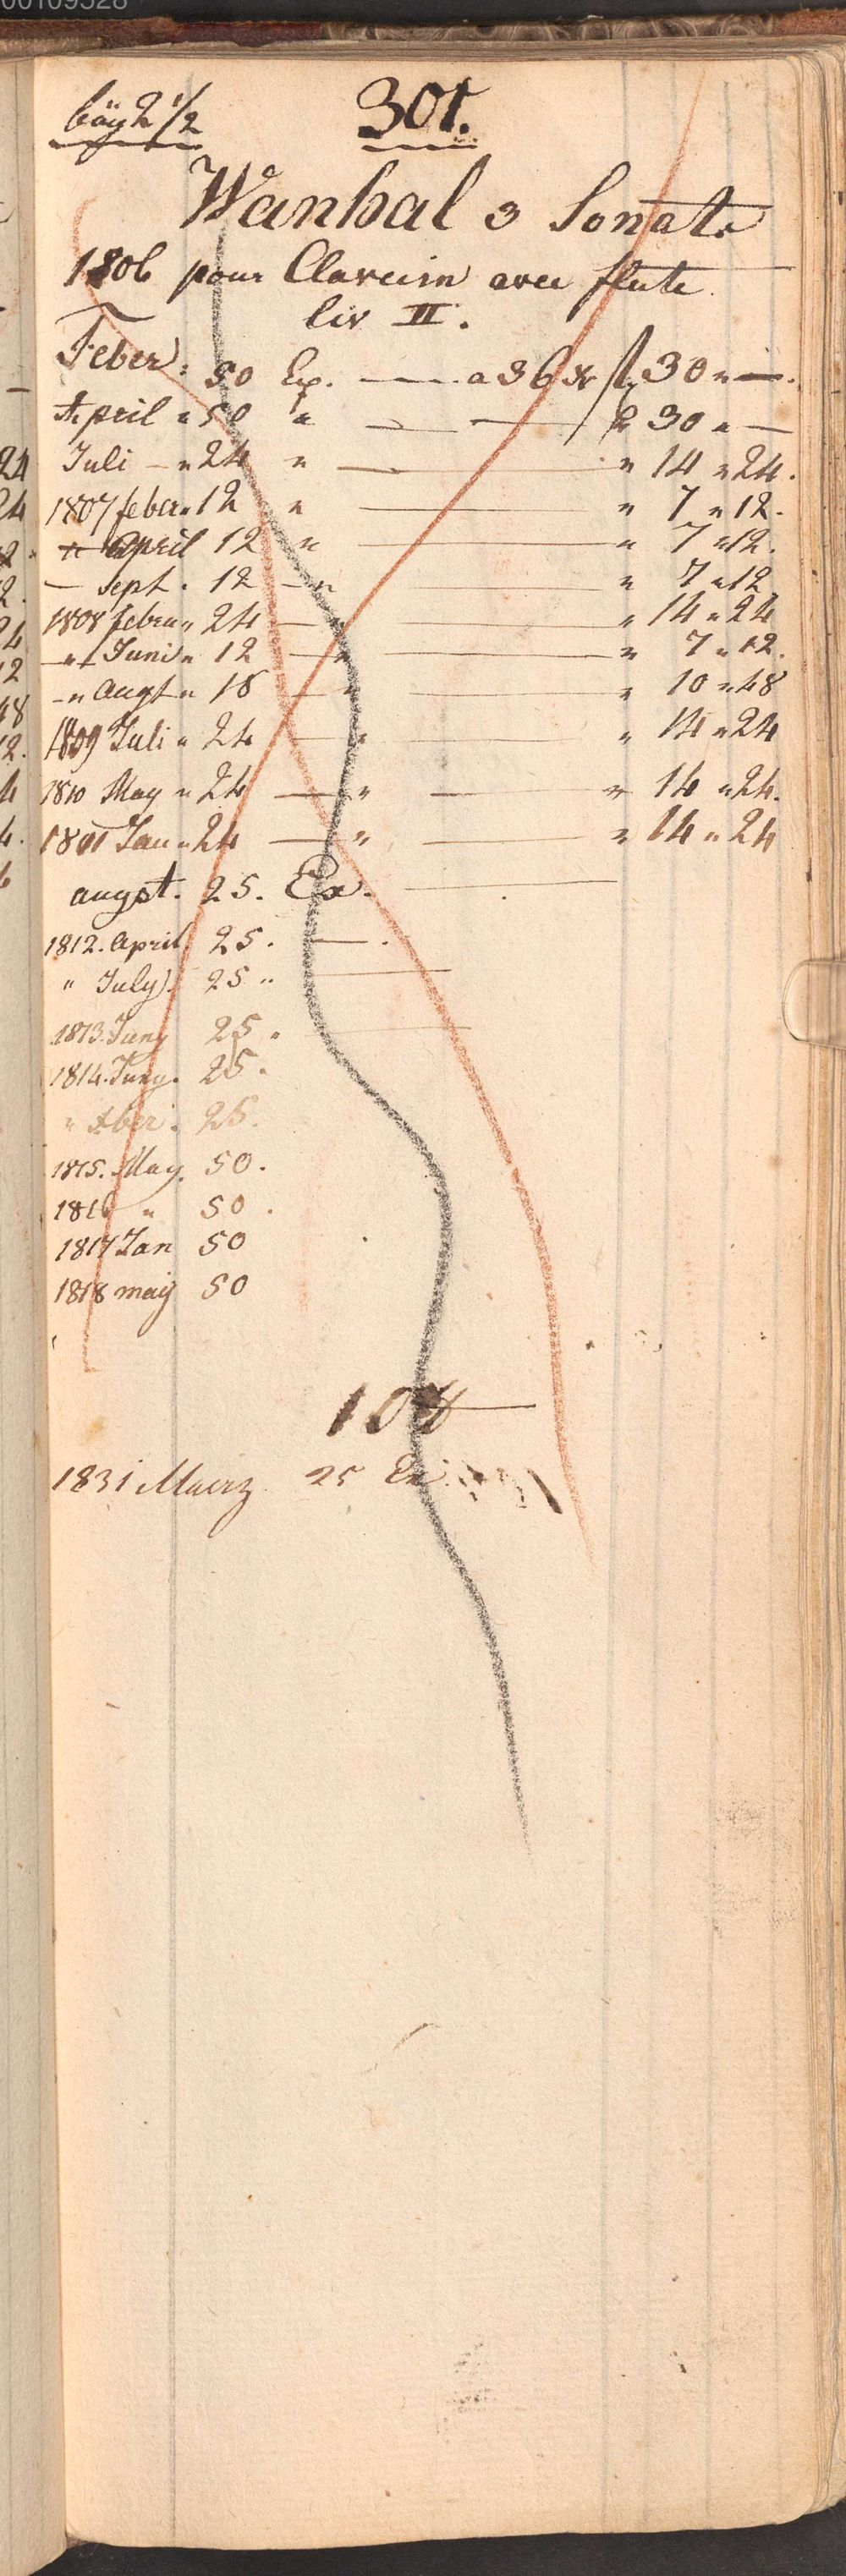 00109528
böy 2 1/2
301.
Wanhal 3 Sonate
1806 pour Clavecin avec flute
liv II.
Feber: 50 Ex. — a 36 xr f 30 " —.
April " 50 " — — " 30 " —
Juli — " 24 " — " 14 " 24.
1807 feber " 12 " — " 7 " 12.
" April 12 " — " 7 " 12.
— Sept. 12 — " — " 7 " 12
1808 febru " 24 — " — " 14 " 24
— " Juni " 12 — " — " 7 " 12.
— " Augt " 18 — " — " 10 " 48
1809 Juli " 24 — " — " 14 " 24
1810 May " 24 — " — " 14 " 24.
1811 Jan " 24 — " — " 14 " 24
augst. 25. Ex. —
1812. April 25. — .
" July. 25 " —
1813. Juny 25 " —
1814. Juny. 25.
" 25.
1815. May. 50.
1816 " 50.
1817 Jan 50
1818 maij 50
1831 Maerz 25 Ex